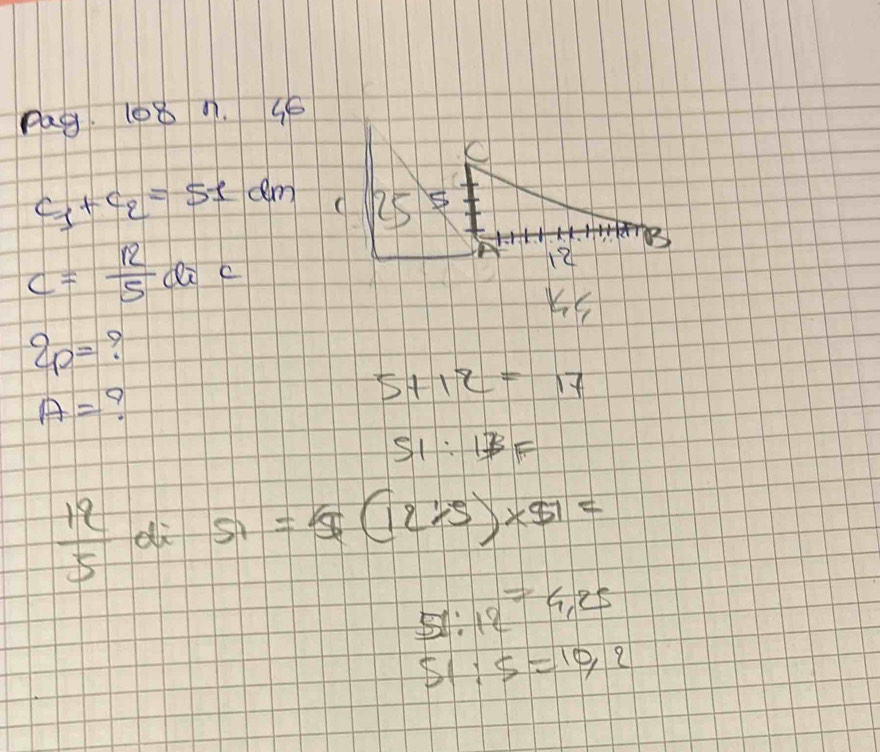 pag. 108 n. 46
c₁+c₂ = 51 dm
C = 12/5 di c
2p = ?
A = ?
C
25 5
A B
12
5+12 = 17
51 : 17 =
12/5 di 51 = (12:5)×51 =
51:12 = 4,25
51:5 = 10,2